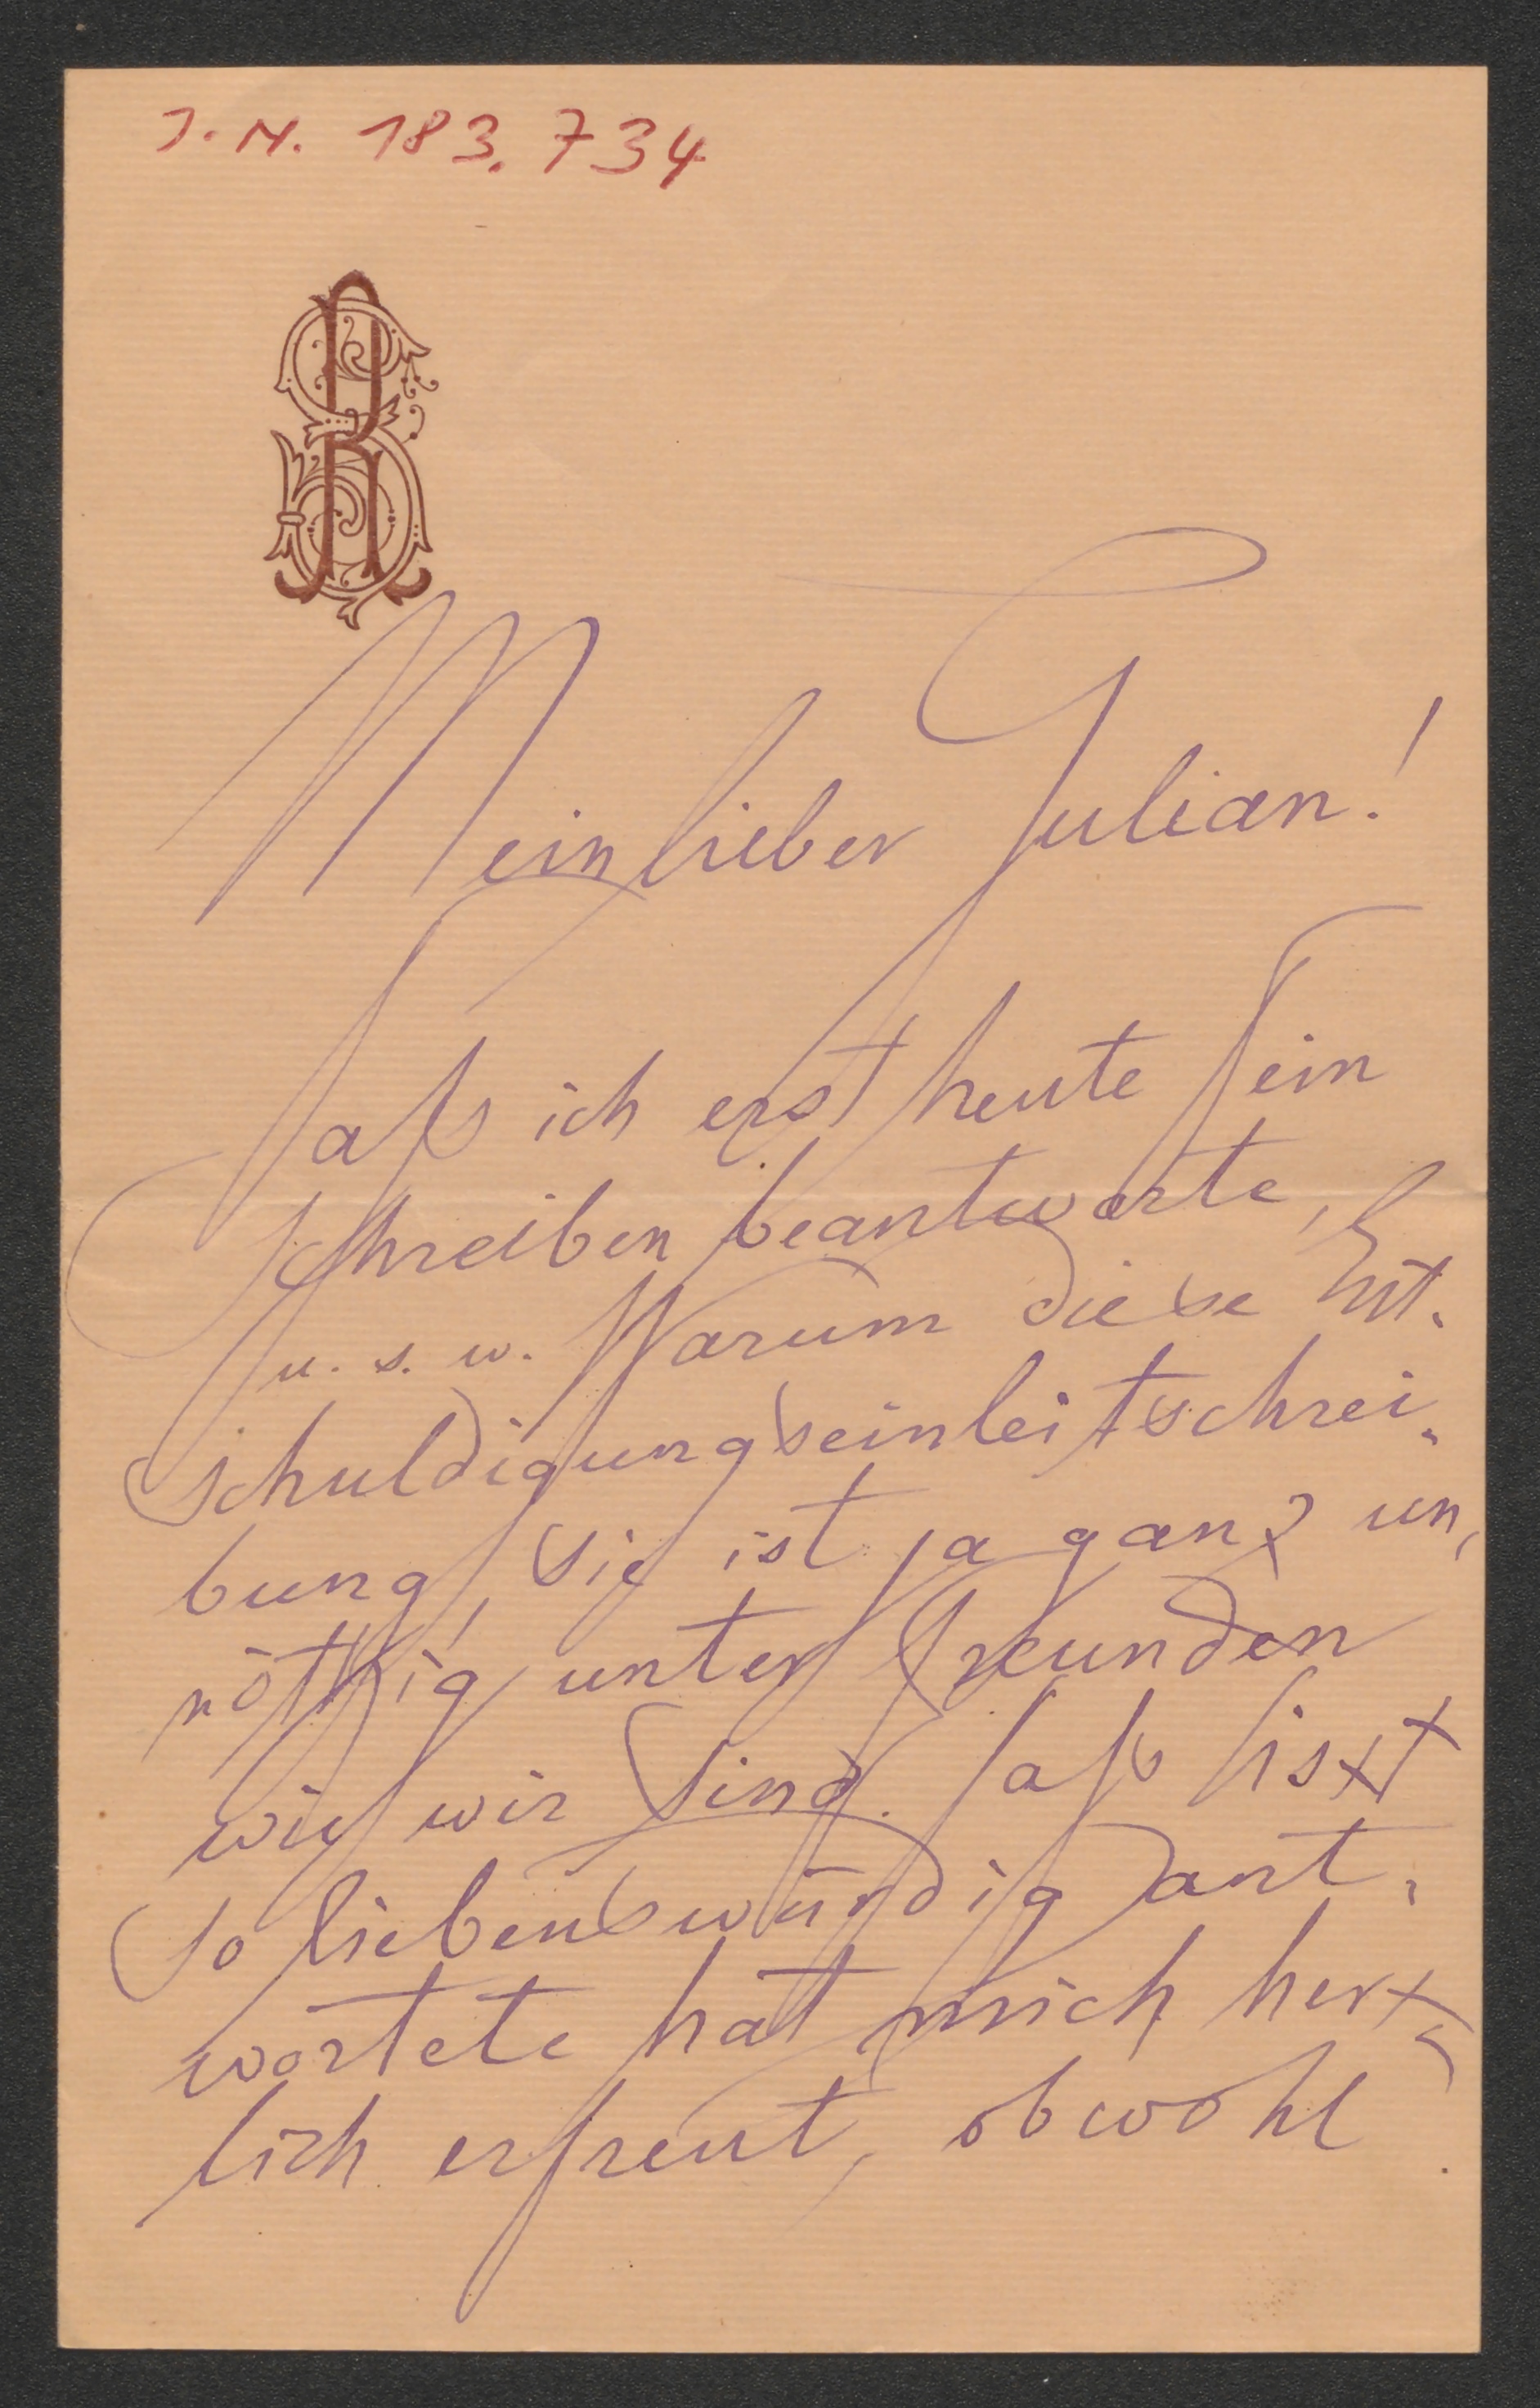 J. N. 183.734
Mein lieber Julian!
Daß ich erst heute Dein
Schreiben beantworte,
u. s. w. Warum diese Ent-
schuldigungseinleitschrei-
bung, sie ist ja ganz un-
nöthig unter Freunden
wie wir sind. Daß Liszt
so liebenswürdig ant-
wortete hat mich herz-
lich erfreut, obwohl